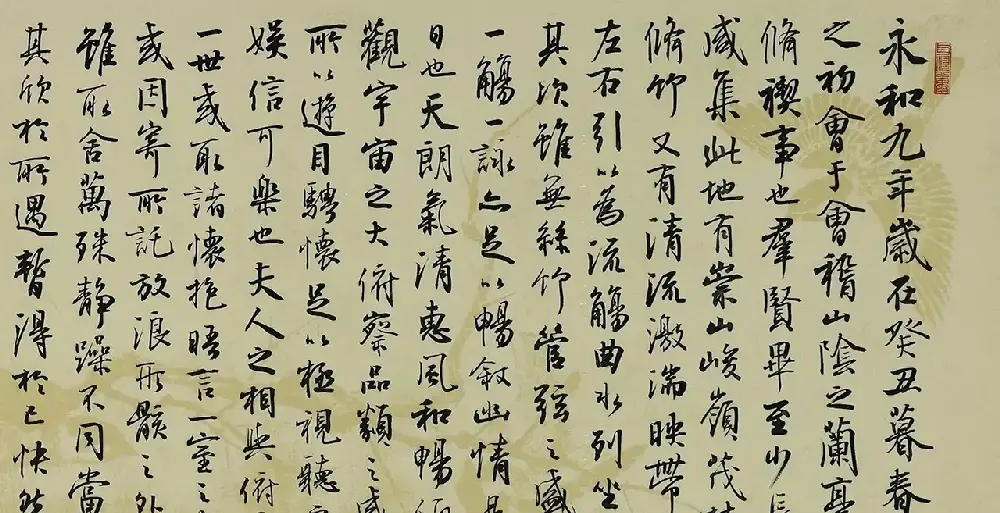 永和九年歲在癸丑暮春
之初會于會稽山陰之蘭亭
脩禊事也羣賢畢至少長
咸集此地有崇山峻嶺茂林
脩竹又有清流激湍映帶
左右引以為流觴曲水列坐
其次雖無絲竹管弦之盛
一觴一詠亦足以暢敘幽情是
日也天朗氣清惠風和暢仰
觀宇宙之大俯察品類之盛
所以遊目騁懷足以極視聽之
娛信可樂也夫人之相與俯
一世或取諸懷抱晤言一室之
或因寄所託放浪形骸之外
雖取舍萬殊靜躁不同當
其欣於所遇暫得於己快然